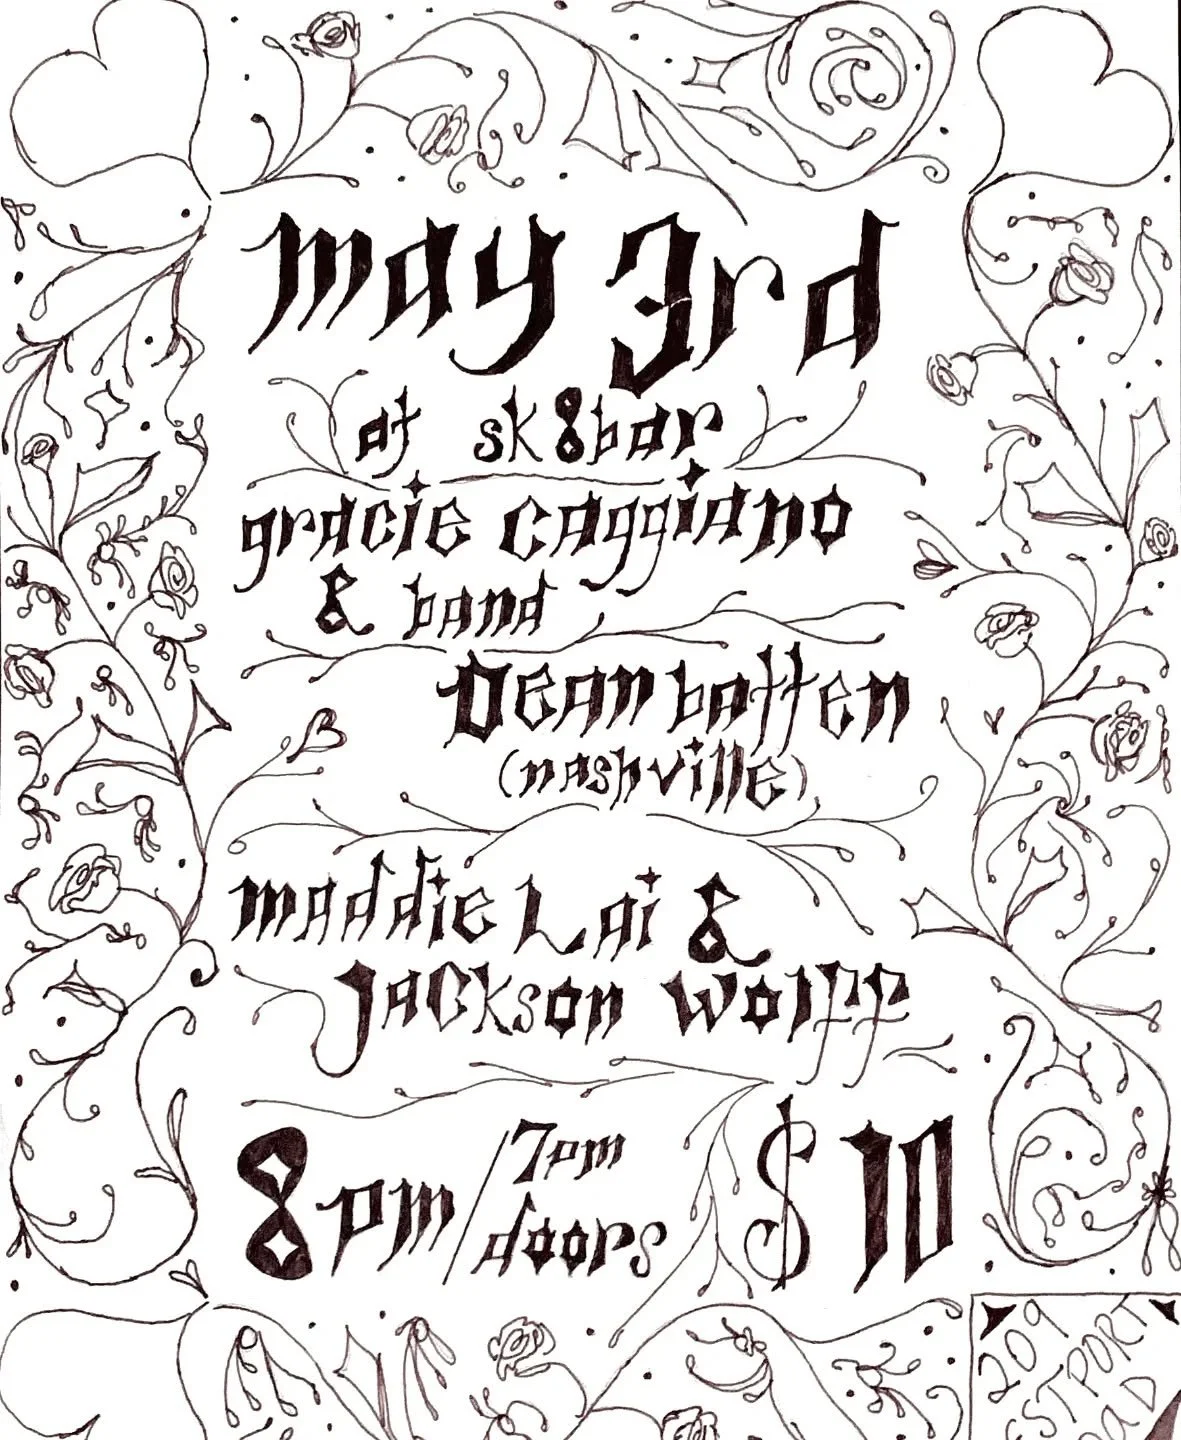 may 3rd
at sk8bar
gracie caggiano
& band
Dean batten
(nashville)
maddie Lai &
Jackson wolff
8pm/7pm
doors
$10
209
ESTPORT